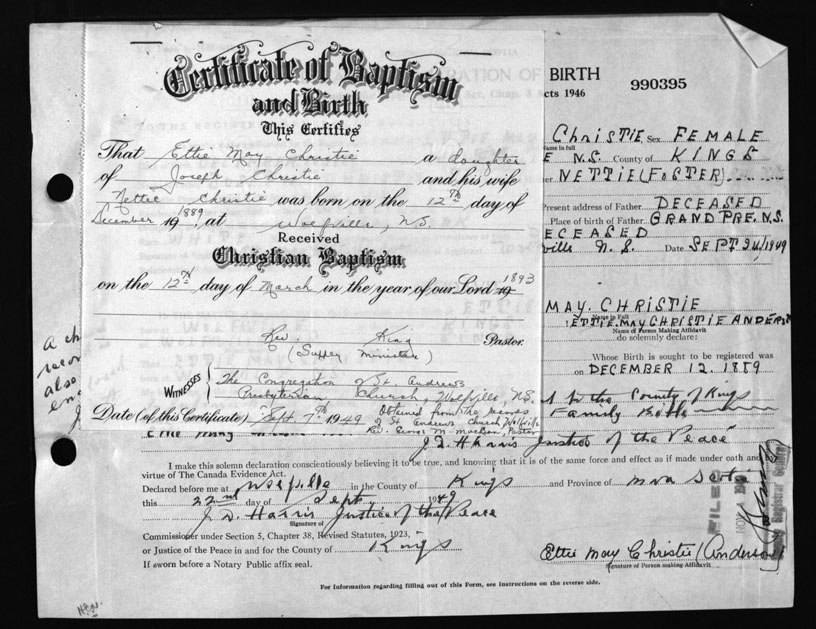 Certificate of Baptism
and Birth
This Certifies
That Ettie May Christie a daughter
of Joseph Christie and his wife
Nettie Christie was born on the 12th day of
December 19 1889, at Wolfville, N.S.
Received
Christian Baptism
on the 12th day of March in the year of our Lord 19 1893
Rev. King Pastor.
(Supply Minister)
WITNESSES
The Congregation of St. Andrews
Presbyterian Church, Wolfville, N.S.
Date (of this Certificate) Sept. 7th 1949
Obtained from the records
of St Andrews church, Wolfville
Rev.
RATION OF BIRTH
990395
Act, Chap.
cts 1946
CHRISTIE, Sex FEMALE
Name in full
E N.S. County of KINGS
er NETTIE (FOSTER)
Present address of Father DECEASED
Place of birth of Father GRAND PRE. N.S.
ECEASED
ville N.S. Date SEPT 24/1949
MAY. CHRISTIE
Name in Full
ETTIE. MAY CHRISTIE ANDERS
Name of Person Making Affidavit
do solemnly declare:
Whose Birth is sought to be registered was
on DECEMBER 12. 1889
in the County of Kings
Family Bible
J.D. Harris Justice of the Peace
I make this solemn declaration conscientiously believing it to be true, and knowing that it is of the same force and effect as if made under oath and
virtue of The Canada Evidence Act.
Declared before me at Wolfville in the County of Kings and Province of Nova Scotia
this 22nd day of Sept 1949
J. D. Harris Justice of the Peace
Signature of
Commissioner under Section 5, Chapter 38, Revised Statutes, 1923,
or Justice of the Peace in and for the County of Kings
If sworn before a Notary Public affix seal.
Ettie May Christie (Anderson
Signature of Person making Affidavit
For Information regarding filling out of this Form, see Instructions on the reverse side.
FILED
NOV
Registrar General
also